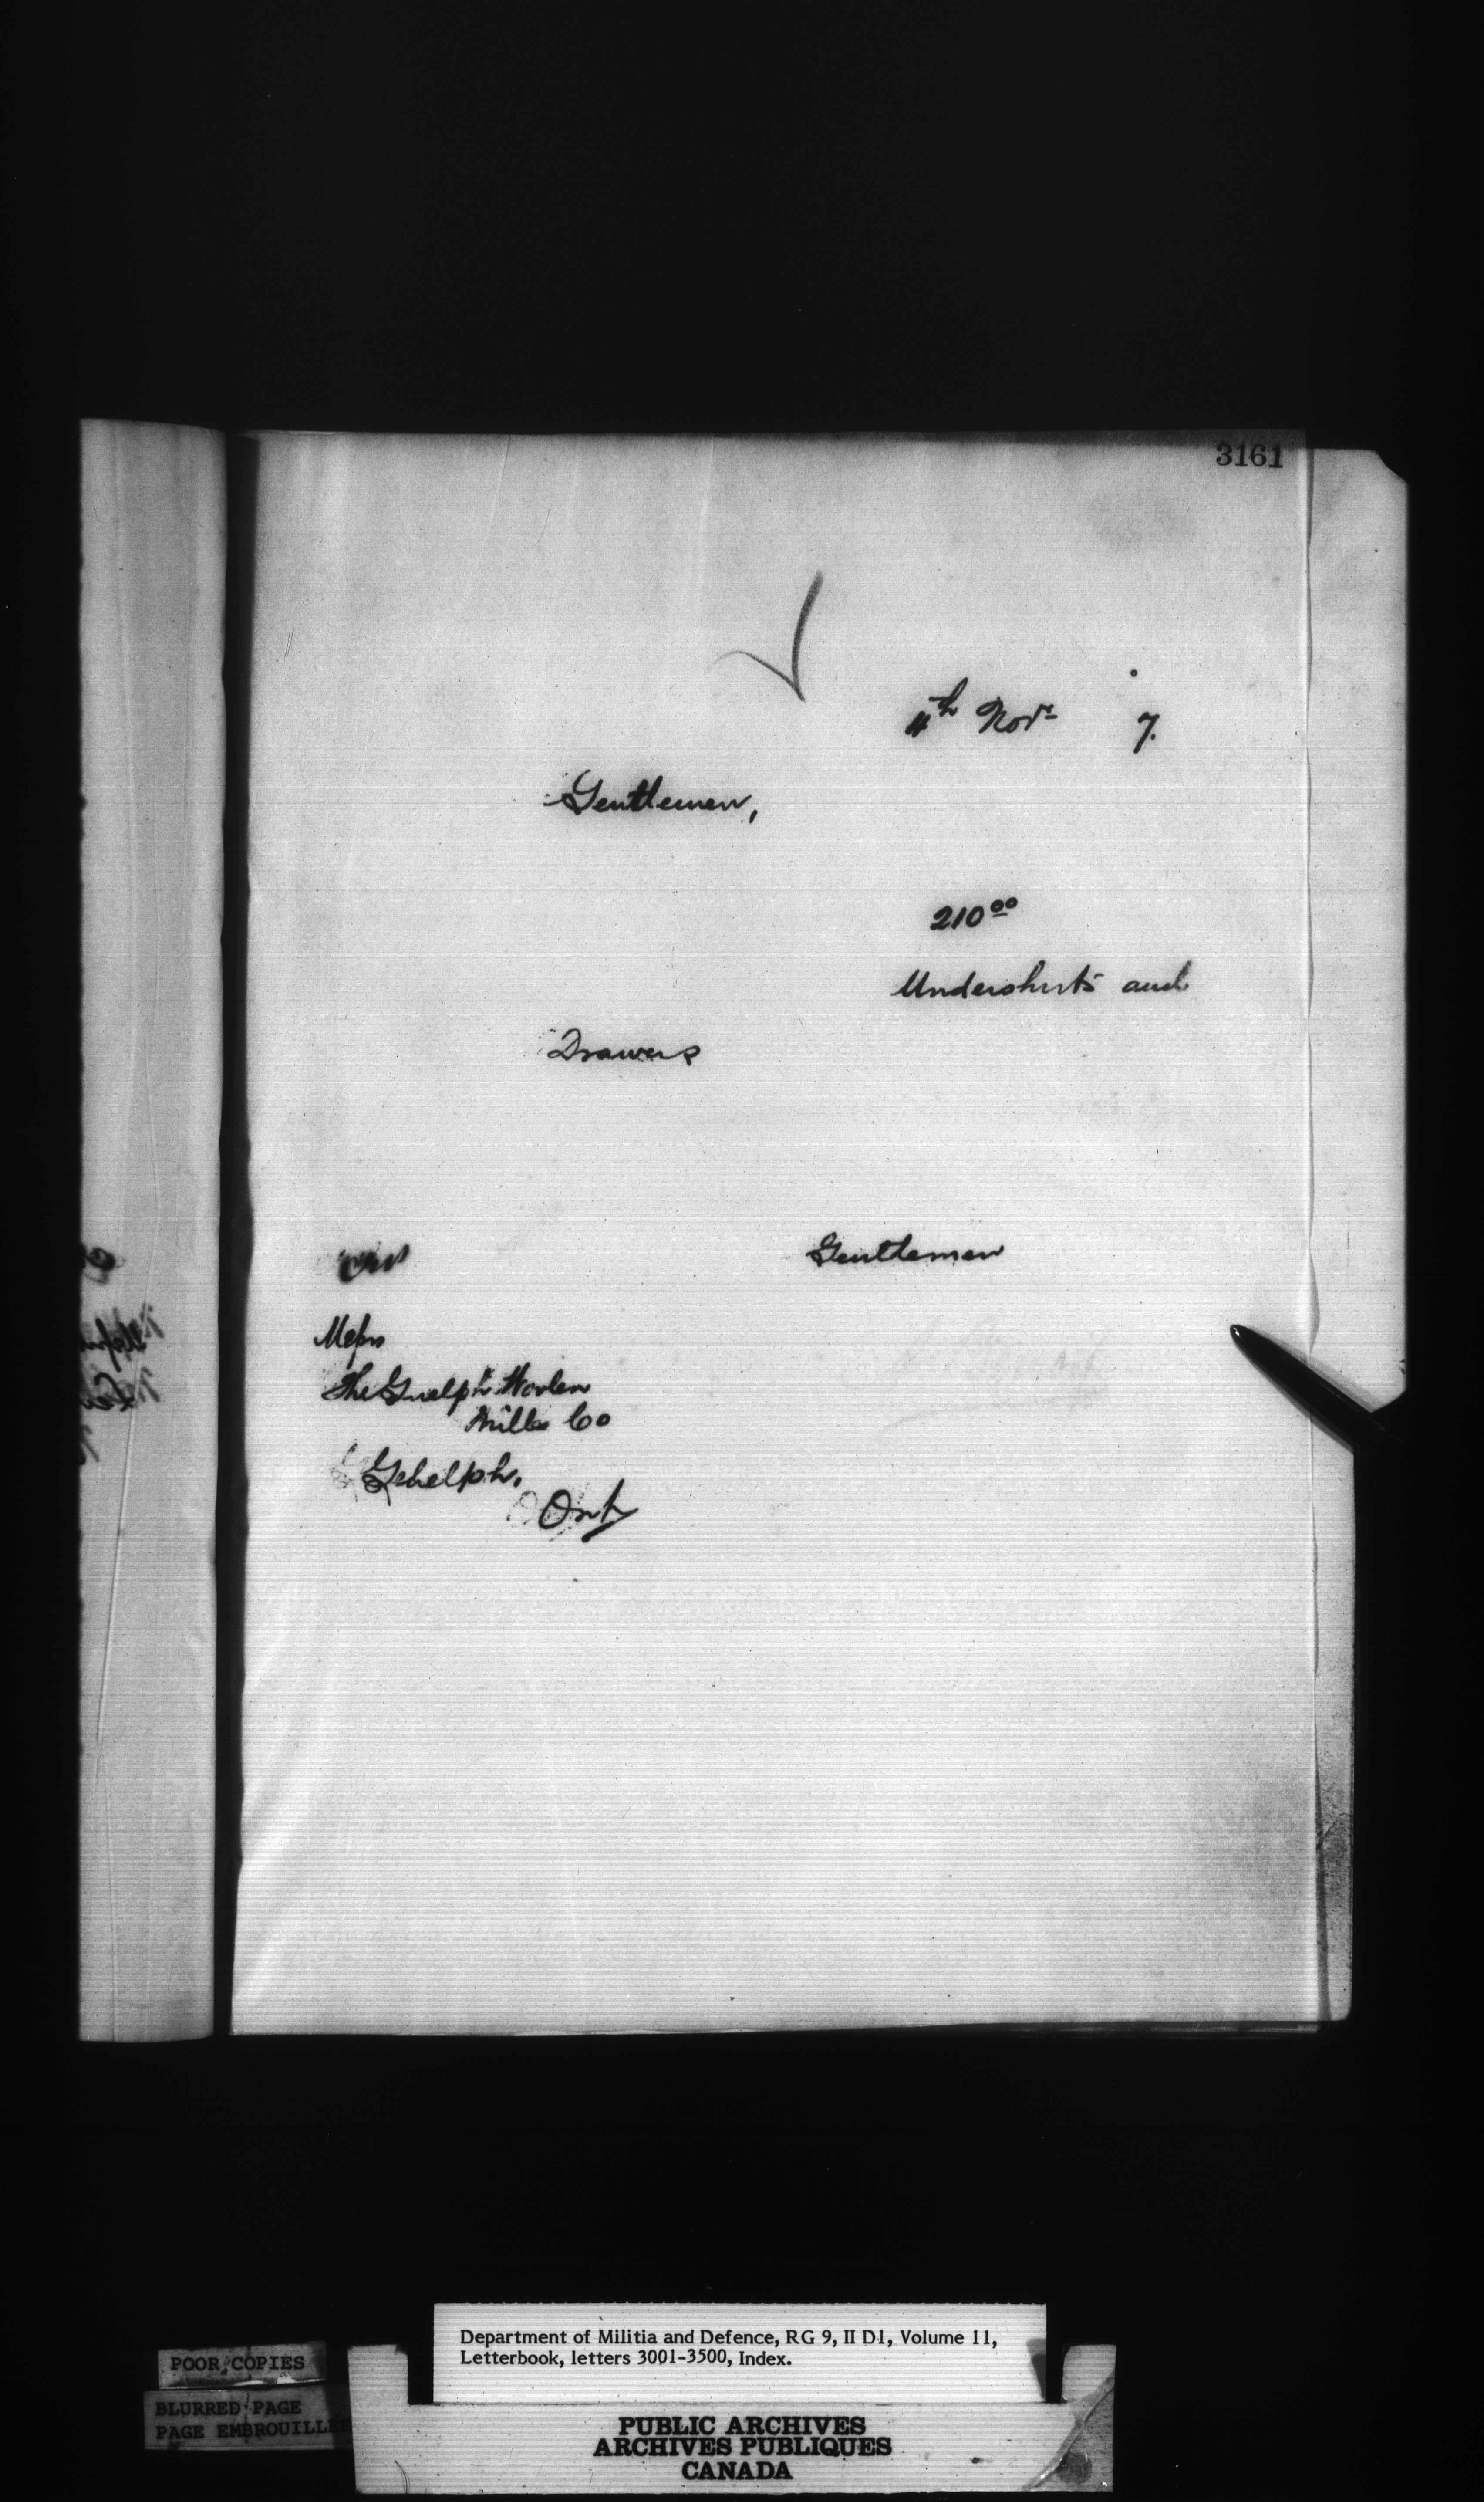 3161
4th Novr 7.
Gentlemen,
210 00
Undershirts and
Drawers
Gentlemen
Messrs
The Guelph Woolen
Mills Co
Guelph,
Ont
Department of Militia and Defence, RG 9, II D1, Volume 11,
Letterbook, letters 3001-3500, Index.
POOR COPIES
BLURRED PAGE
PAGE EMBROUILLEE
PUBLIC ARCHIVES
ARCHIVES PUBLIQUES
CANADA